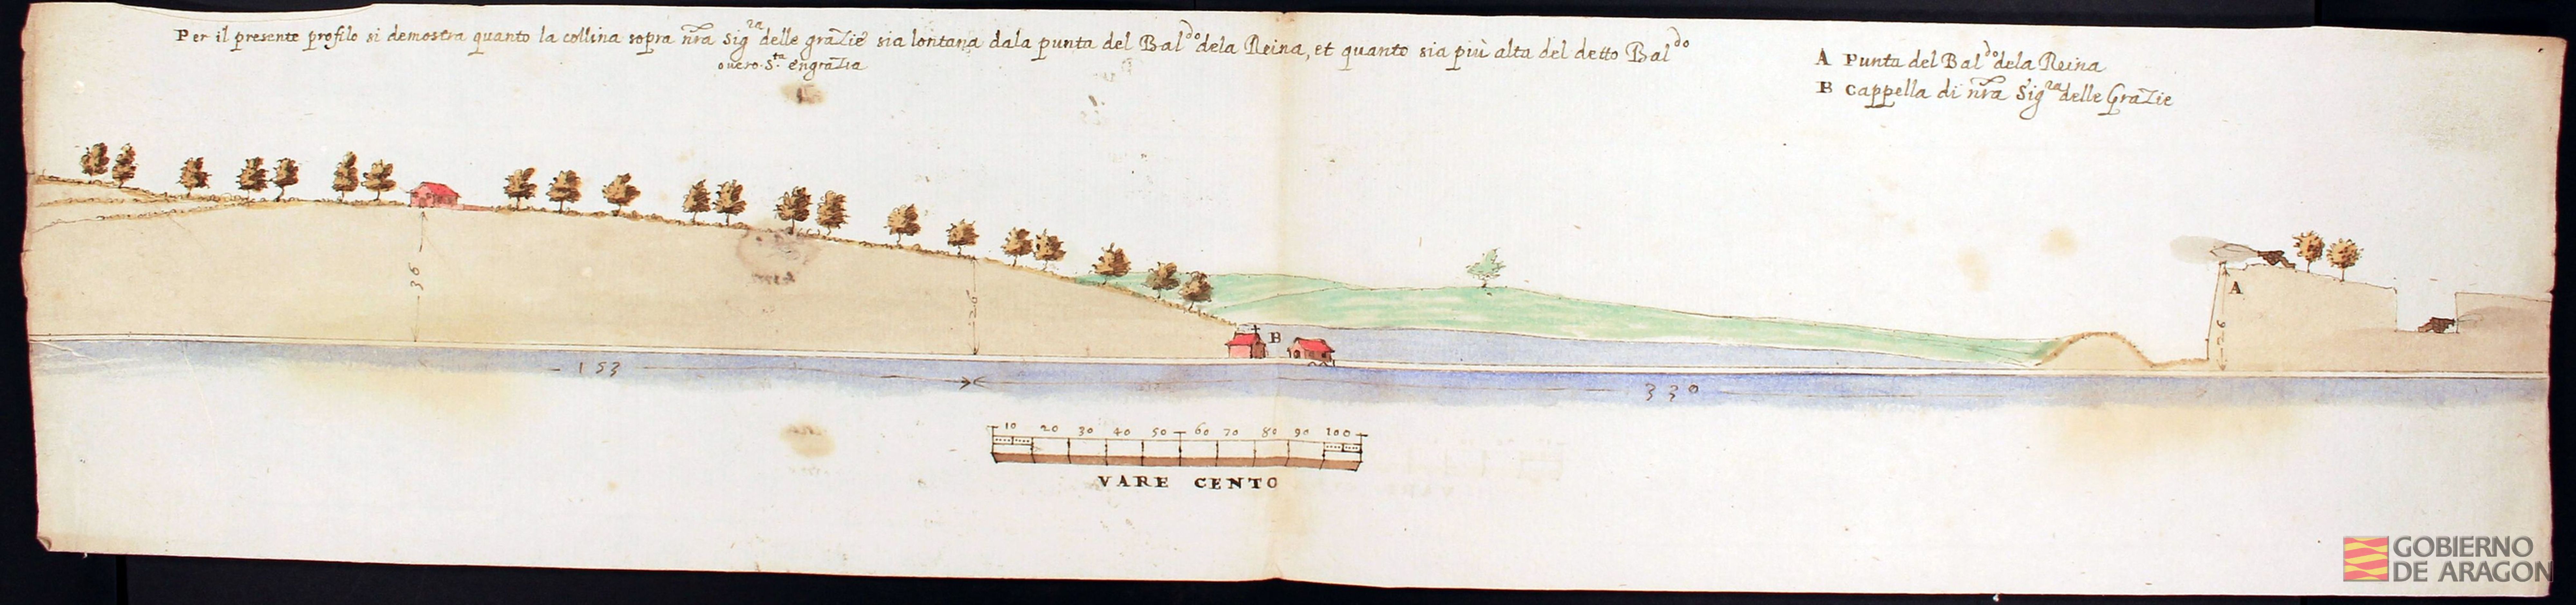 Per il presente profilo si demostra quanto la collina sopra nr̃a Sig.ra delle graZie sia lontana dala punta del Bal.do dela Reina, et quanto sia più alta del detto Bal.do
overo S.ta engraZia
A Punta del Bal.do dela Reina
B Cappella di nr̃a Sig.ra delle GraZie
36
26
B
A
26
153
330
10 20 30 40 50 60 70 80 90 100
VARE CENTO
GOBIERNO
DE ARAGON